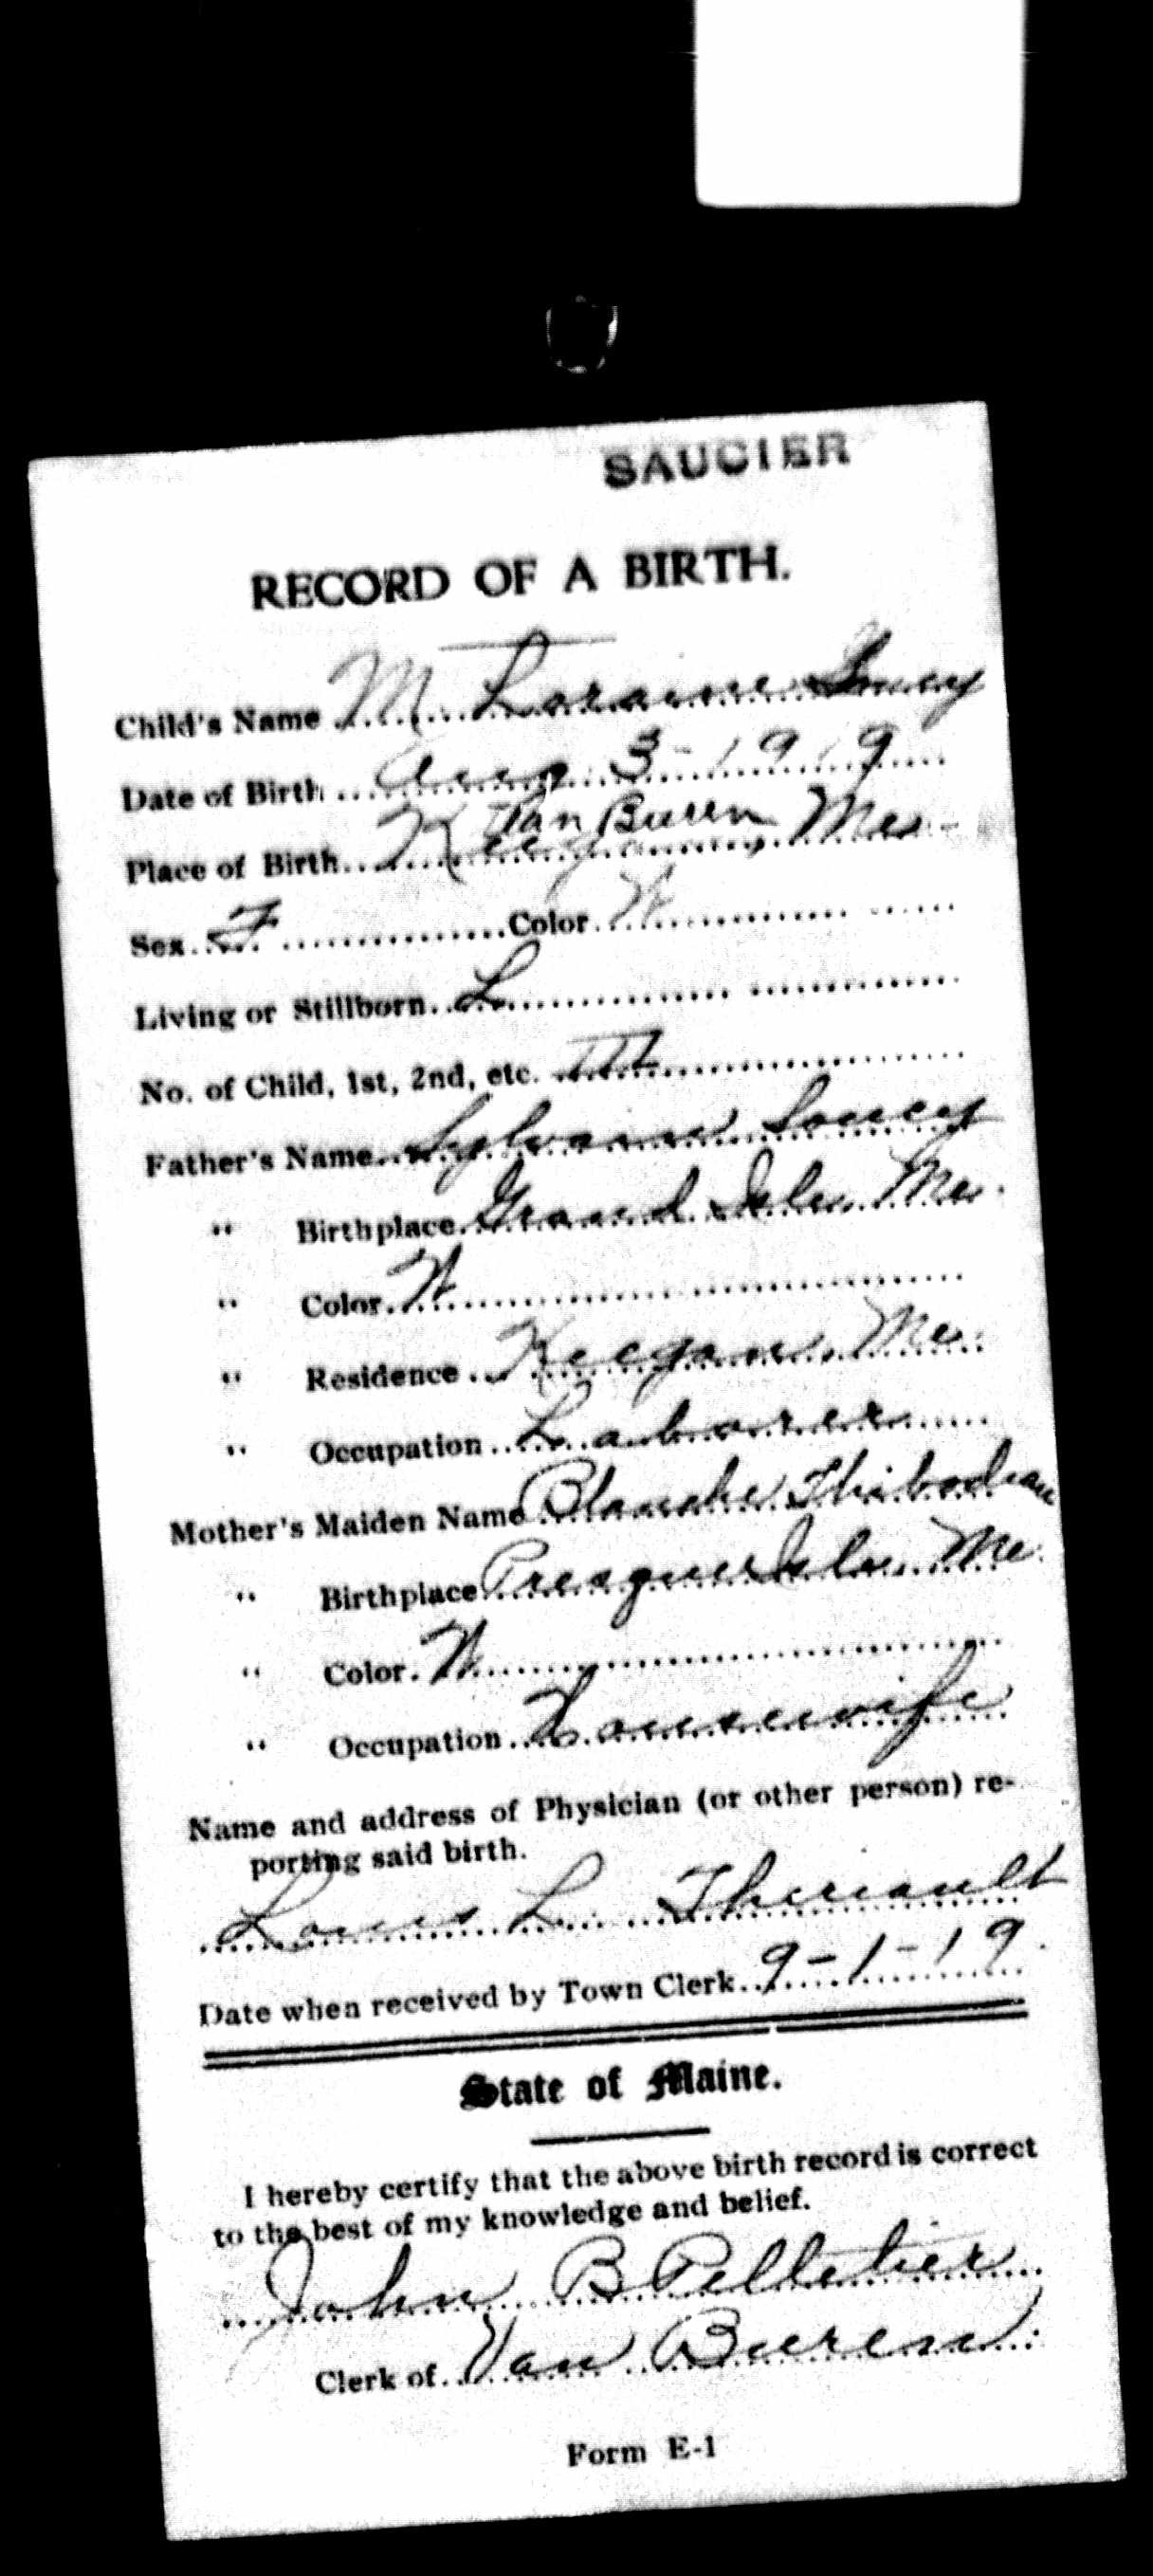 SAUCIER
RECORD OF A BIRTH.
Child's Name M Loraine Soucy
Date of Birth Aug 3-1919
Van Buren
Place of Birth Keegan, Me.
Sex F Color W
Living or Stillborn L
No. of Child, 1st, 2nd, etc. III
Father's Name Sylvain Soucy
" Birthplace Grand Isle Me.
" Color W
" Residence Keegan, Me.
" Occupation Laborer
Mother's Maiden Name Blanche Thibodeau
" Birthplace Presque Isle Me.
" Color W
" Occupation Housewife
Name and address of Physician (or other person) re-
porting said birth.
Louis L. Theriault
Date when received by Town Clerk 9-1-19
State of Maine.
I hereby certify that the above birth record is correct
to the best of my knowledge and belief.
John B Pelletier
Clerk of Van Buren
Form E-1